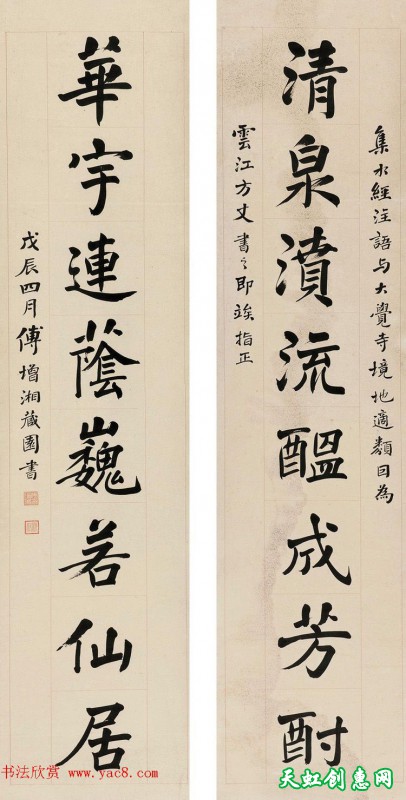 集水經注語与大覺寺境地適類因為
清泉濆流醖成芳酎
雲江方丈書之即竢指正
華宇連蔭巍若仙居
戊辰四月傅增湘藏園書
书法欣赏 www.yac8.com
天虹创惠网